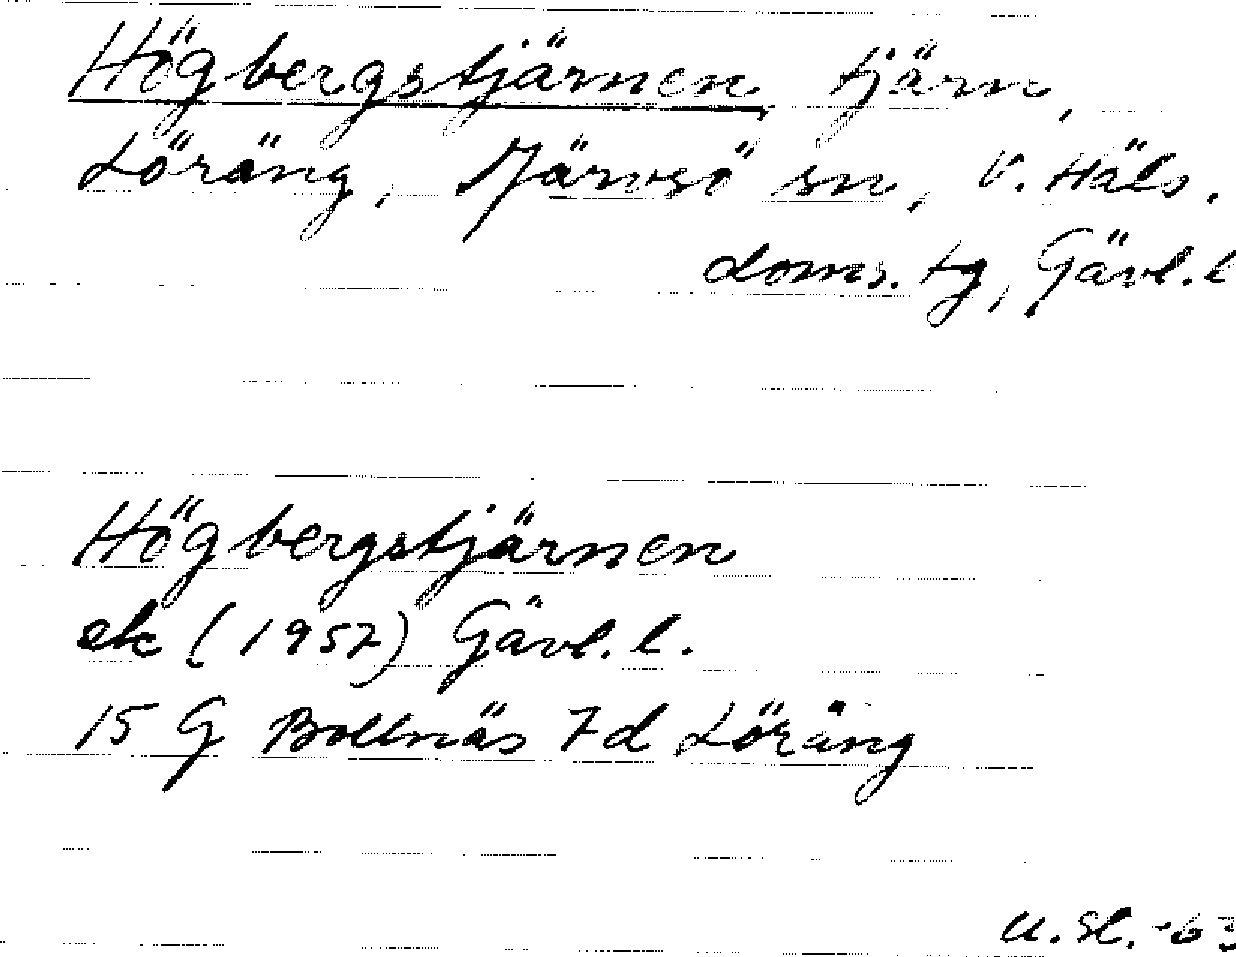 Högbergstjärnen tjärn,
Löräng, Järvsö sn, V. Häls.
doms. tg, Gävl. l
Högbergstjärnen
ek (1957) Gävl. l.
15 G Bollnäs 7d Löräng
U. Sl. -63